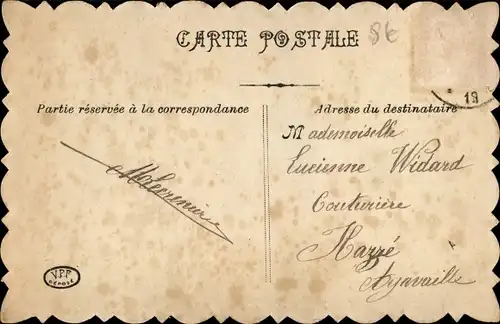 CARTE POSTALE
86
19
Partie réservée à la correspondance
Adresse du destinataire
Mademoiselle
Lucienne Widard
Couturière
Harzé
Aywaille
V.P.F
DÉPOSÉ